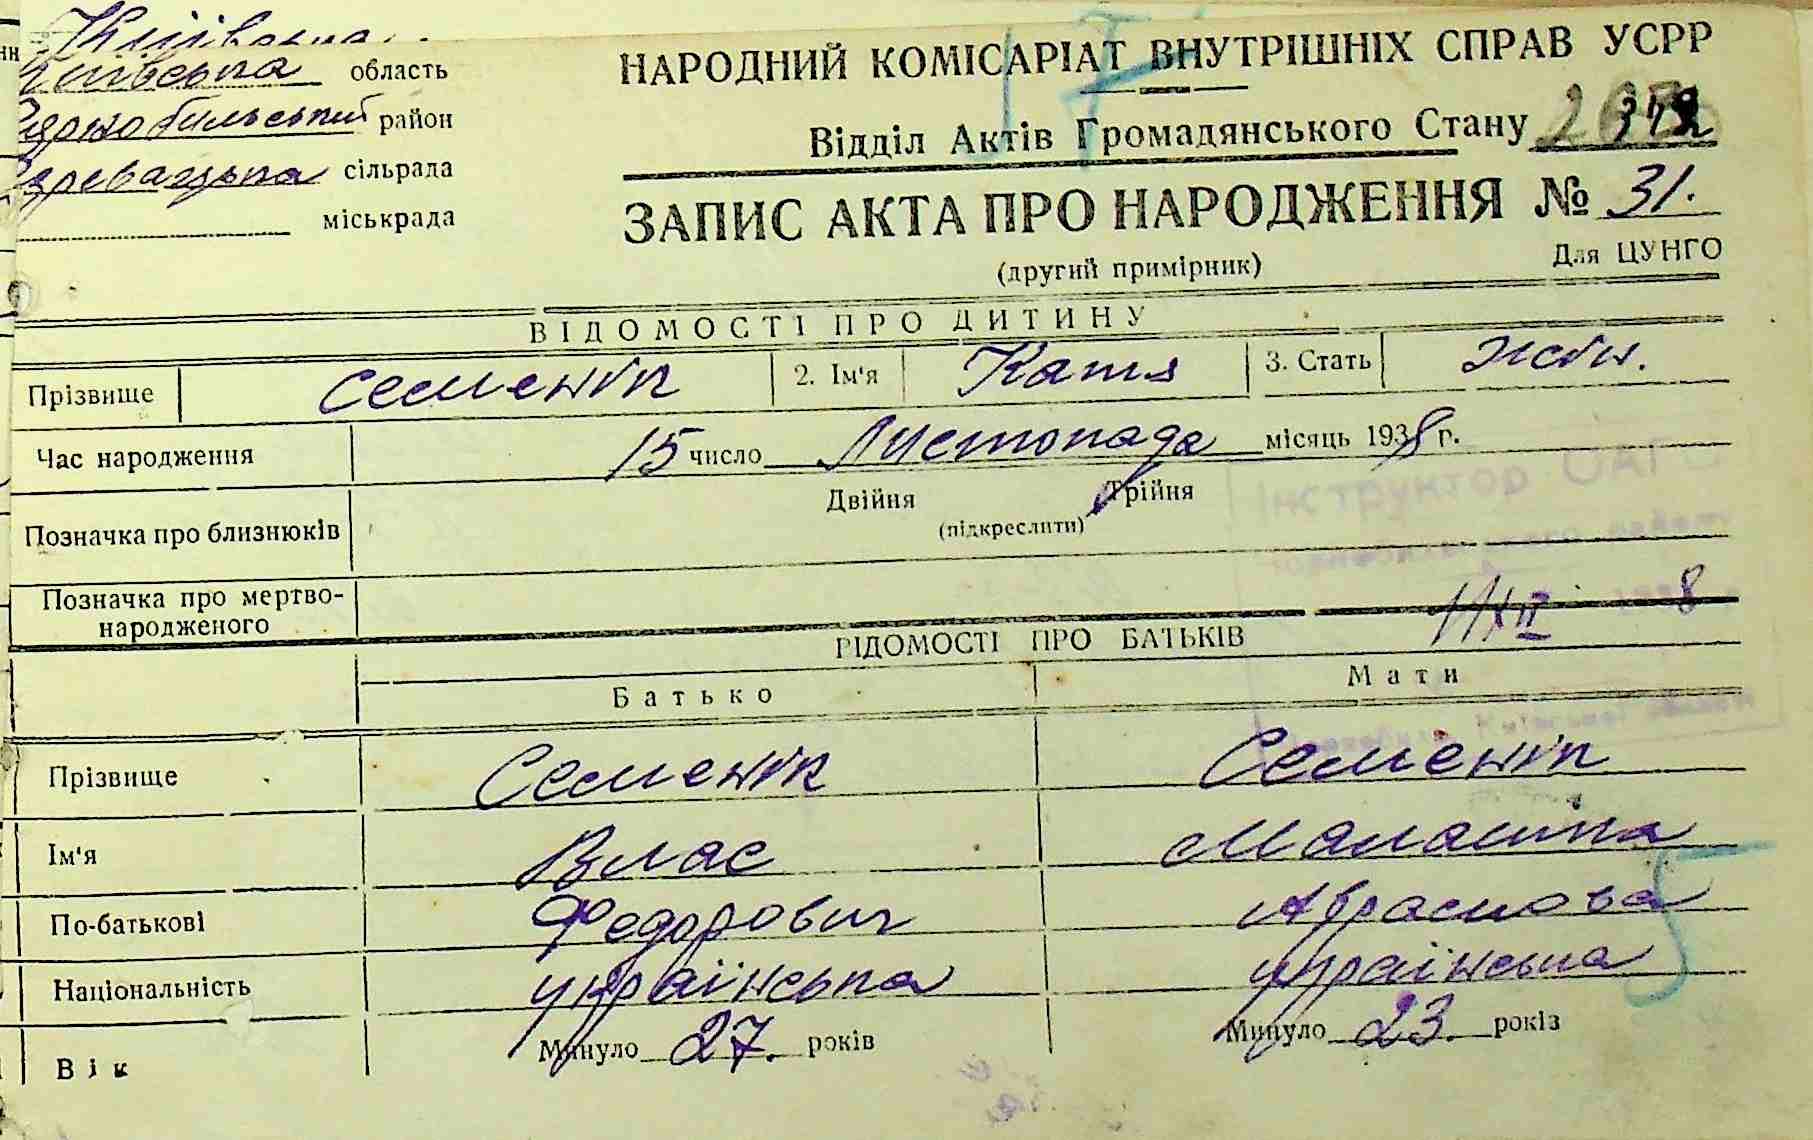 Київська область
Чорнобильський район
сільрада
міськрада
НАРОДНИЙ КОМІСАРІАТ ВНУТРІШНІХ СПРАВ УСРР
Відділ Актів Громадянського Стану
ЗАПИС АКТА ПРО НАРОДЖЕННЯ № 31.
(другий примірник) Для ЦУНГО
ВІДОМОСТІ ПРО ДИТИНУ
Прізвище Семенік 2. Ім'я Катя 3. Стать жін.
Час народження 15 число Листопада місяць 1938 г.
Двійня Трійня
Позначка про близнюків (підкреслити)
Позначка про мертво-
народженого
Інструктор
11/XII 1938
РІДОМОСТІ ПРО БАТЬКІВ
Батько Мати
Прізвище Семенік Семенік
Ім'я Влас Малашка
По-батькові Федорович Абрамова
Національність українська українська
Вік Минуло 27. років Минуло 23. років